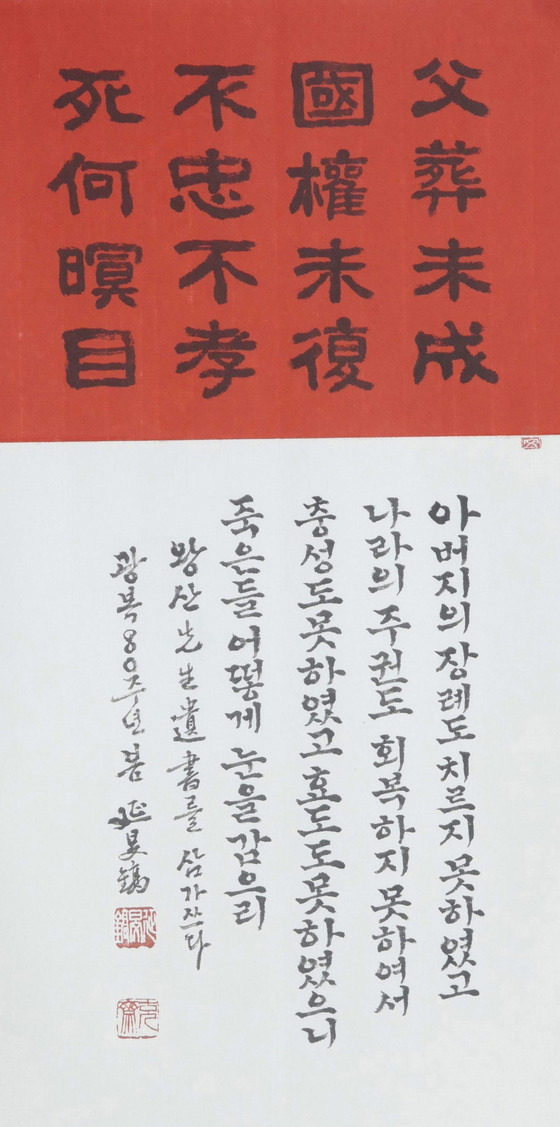 父葬未成
國權未復
不忠不孝
死何暝目
아버지의 장례도 치르지 못하였고
나라의 주권도 회복하지 못하여서
충성도 못하였고 효도도 못하였으니
죽은들 어떻게 눈을 감으리
왕산 先生遺書를 삼가 쓰다
광복 80주년 봄 延旻鎬